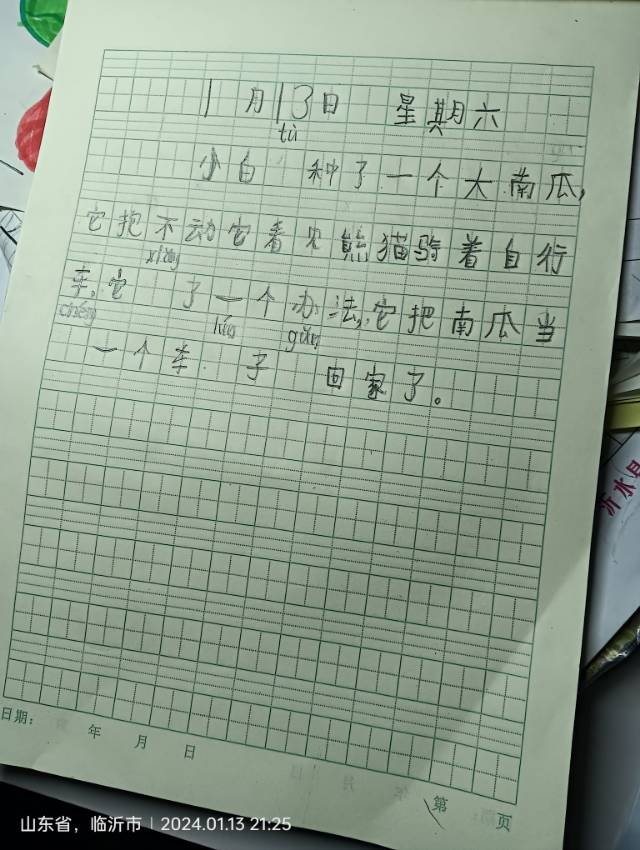 1月13日 星期六
tù
小白 种了一个大南瓜,
它抱不动它看见熊猫骑着自行
xiǎng
车,它 了一个办法,它把南瓜当
chéng lún gǔn
一个车 子 回家了。
日期: 年 月 日
第 页
沂水县
山东省，临沂市 | 2024.01.13 21:25